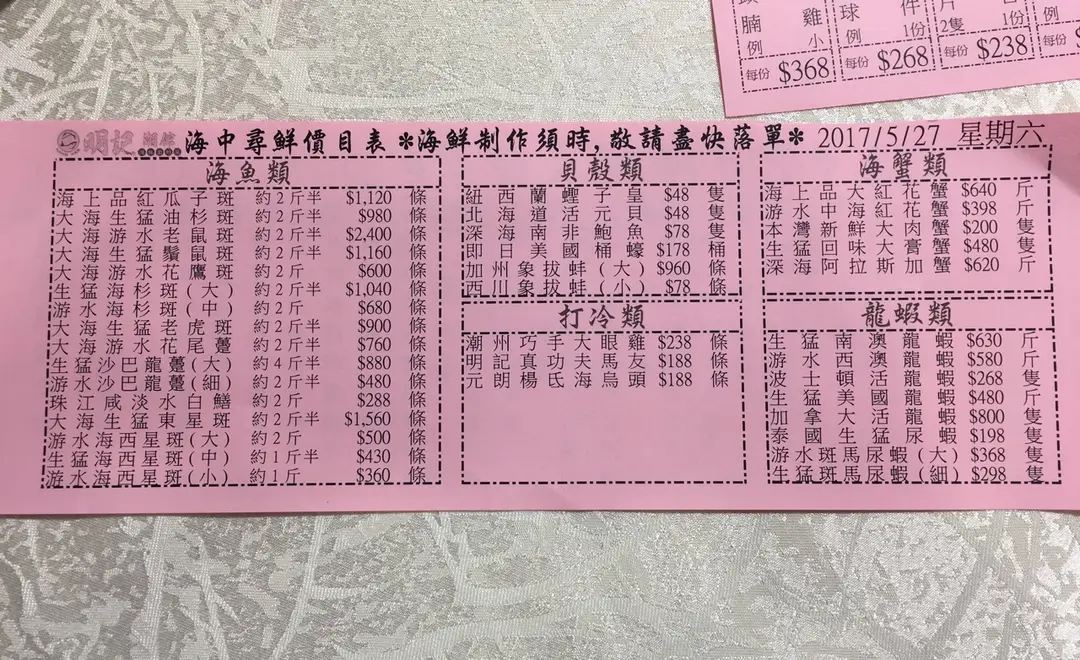 腩 雞 球 件 片
例 小 例 1份 2隻 1份 例
每份 $368 每份 $268 每份 $238 每份
明記 海中尋鮮價目表 *海鮮制作須時,敬請盡快落單* 2017/5/27 星期六
海魚類
海上品紅瓜子斑 約2斤半 $1,120 條
大海生猛油杉斑 約2斤半 $980 條
大海游水老鼠斑 約2斤半 $2,400 條
大海生猛鬚鼠斑 約2斤半 $1,160 條
大海游水花鷹斑 約2斤 $600 條
生猛海杉斑(大) 約2斤半 $1,040 條
游水海杉斑(中) 約2斤 $680 條
大海生猛老虎斑 約2斤半 $900 條
大海游水花尾躉 約2斤 $760 條
生猛沙巴龍躉(大) 約4斤半 $880 條
游水沙巴龍躉(細) 約2斤半 $480 條
珠江咸淡水白鱔 約2斤 $288 條
大海生猛東星斑 約2斤半 $1,560 條
游水海西星斑(大) 約2斤 $500 條
生猛海西星斑(中) 約1斤半 $430 條
游水海西星斑(小) 約1斤 $360 條
貝殼類
紐西蘭蟶子皇 $48 隻
北海道活元貝 $48 隻
深海南非鮑魚 $78 隻
即日美國桶蠔 $178 桶
加州象拔蚌(大) $960 條
西川象拔蚌(小) $78 條
打冷類
潮州巧手大眼雞 $238 條
明記真功夫馬友 $188 條
元朗楊氏海烏頭 $188 條
海蟹類
海上品大紅花蟹 $640 斤
游水中海紅花蟹 $398 斤
本灣新鮮大肉蟹 $200 隻
生猛回味大膏蟹 $480 斤
深海阿拉斯加蟹 $620 斤
龍蝦類
生猛南澳龍蝦 $630 斤
游水西澳龍蝦 $580 斤
波士頓活龍蝦 $268 隻
生猛美國龍蝦 $480 斤
加拿大活龍蝦 $800 隻
泰國生猛尿蝦 $198 隻
游水斑馬尿蝦(大) $368 隻
生猛斑馬尿蝦(細) $298 隻